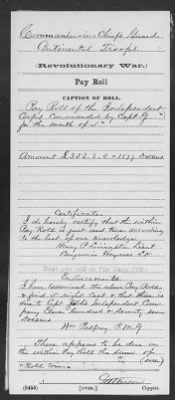 Commander in Chiefs Guard
Continental Troops
Revolutionary War.
Pay Roll
CAPTION OF ROLL.
Pay Roll of the Independent
Corps Commanded by Capt. G
for the month of
Amount £ 353.2.0 = 1177 Dollars
Certificate
I do hereby certify that the within
Pay Roll is just and true according
to the best of my knowledge
Henry P Livingston Lieut
Benjamin Grymes Lt
Endorsement
I have examined the above Pay Roll
& find it right Cast & that there is
due to Capt Gibbs Independent Com-
pany Eleven hundred & seventy seven
Dollars
Wm Palfrey P.M.G
There appears to be due on
the within Pay Roll the sum of
(over)
Roll
(545b)
Copyist.